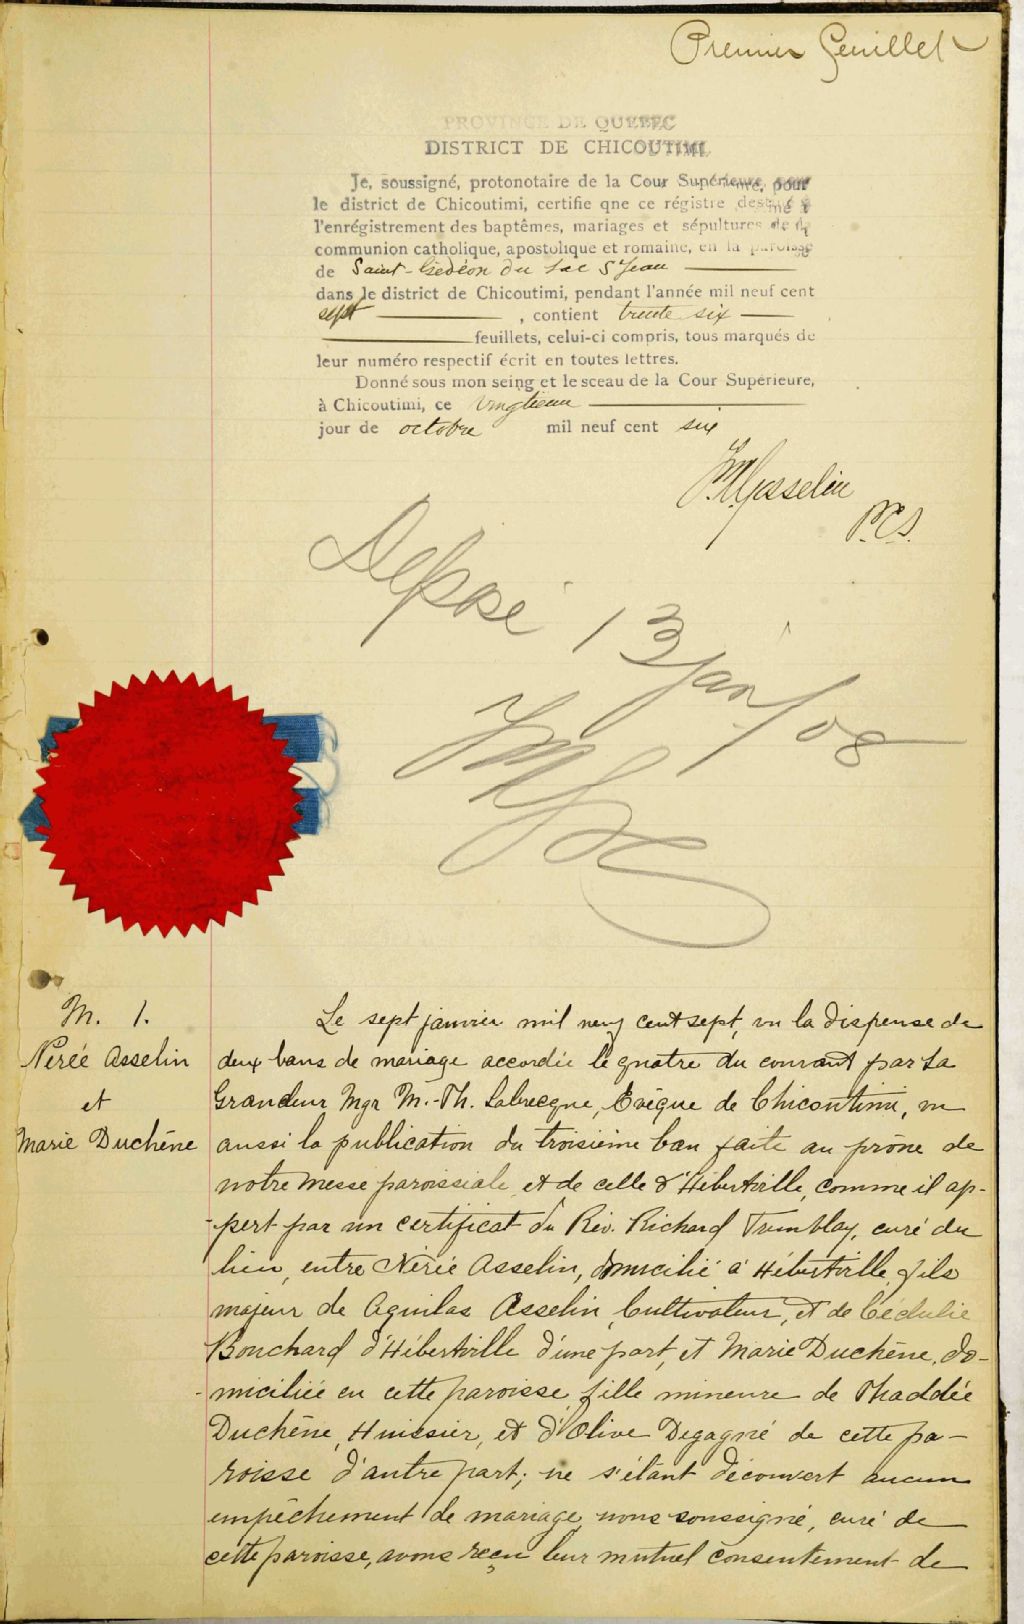 Premier Feuillet
PROVINCE DE QUEBEC
DISTRICT DE CHICOUTIMI
Je, soussigné, protonotaire de la Cour Supérieure, pour
le district de Chicoutimi, certifie qne ce régistre destiné à
l'enrégistrement des baptêmes, mariages et sépultures de la
communion catholique, apostolique et romaine, en la paroisse
de Saint-Gédéon du Lac St Jean
dans le district de Chicoutimi, pendant l'année mil neuf cent
sept, contient trente six
feuillets, celui-ci compris, tous marqués de
leur numéro respectif écrit en toutes lettres.
Donné sous mon seing et le sceau de la Cour Supérieure,
à Chicoutimi, ce vingtième
jour de octobre mil neuf cent six
Gosselin
P.C.S.
Déposé 13 jan/08
M. 1.
Nérée Asselin
et
Marie Duchêne
Le sept janvier mil neuf cent sept, vu la dispense de
deux bans de mariage accordée le quatre du courant par Sa
Grandeur Mgr M.-Th. Labrecque, Evêque de Chicoutimi, vu
aussi la publication du troisième ban faite au prône de
notre messe paroissiale et de celle d'Hébertville, comme il ap-
-pert par un certificat du Rév. Richard Tremblay, curé du
lieu, entre Nérée Asselin, domicilié à Hébertville, fils
majeur de Aquilas Asselin, Cultivateur, et de Céduline
Bouchard d'Hébertville d'une part, et Marie Duchêne, do-
-miciliée en cette paroisse, fille mineure de Thaddée
Duchêne, Huissier, et d'Olive Degagné de cette pa-
roisse d'autre part; ne s'étant découvert aucun
empêchement de mariage, nous soussigné, curé de
cette paroisse, avons reçu leur mutuel consentement de